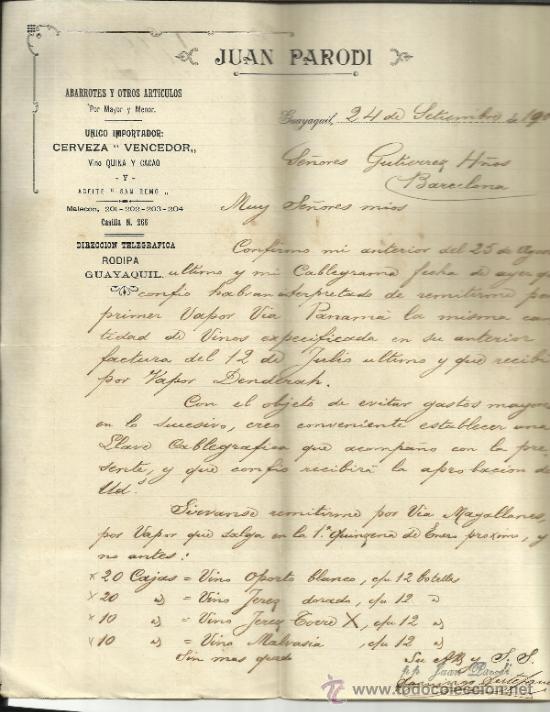 JUAN PARODI
ABARROTES Y OTROS ARTICULOS
Por Mayor y Menor.
UNICO IMPORTADOR:
CERVEZA "VENCEDOR,,
Vino QUINA Y CACAO
- Y -
ACEITE "SAN REMO,,
Malecon, 201-202-203-204
Casilla N. 266
DIRECCION TELEGRAFICA
RODIPA
GUAYAQUIL.
Guayaquil, 24 de Setiembre de 190
Señores Gutierrez Hños
Barcelona
Muy Señores mios
Confirmo mi anterior del 25 de Agos
ultimo y mi Cablegrama fecha de ayer que
confio habran interpretado de remitirme por
primer Vapor Via Panamá la misma can
tidad de Vinos expecificada en su anterior
factura del 12 de Julio ultimo y que recibi
por Vapor Denderah.
Con el objeto de evitar gastos mayore
en lo sucesivo, creo conveniente establecer una
Llave Cablegrafica que acompaño con la pre-
sente, y que confio recibirá la aprobacion de
Uds
Sirvanse remitirme por Via Magallanes,
por Vapor que salga en la 1ª Quinzena de Enero proximo, y
no antes:
x 20 Cajas = Vino Oporto blanco, c/u 12 botellas
x 20 " = Vino Jerez dorado, c/u 12 "
x 10 " = Vino Jerez Torre X, c/u 12 "
x 10 " = Vino Malvasia, c/u 12 "
Sin mas quedo
Su Af y S. S.
p.p. Juan Parodi
todocoleccion.net